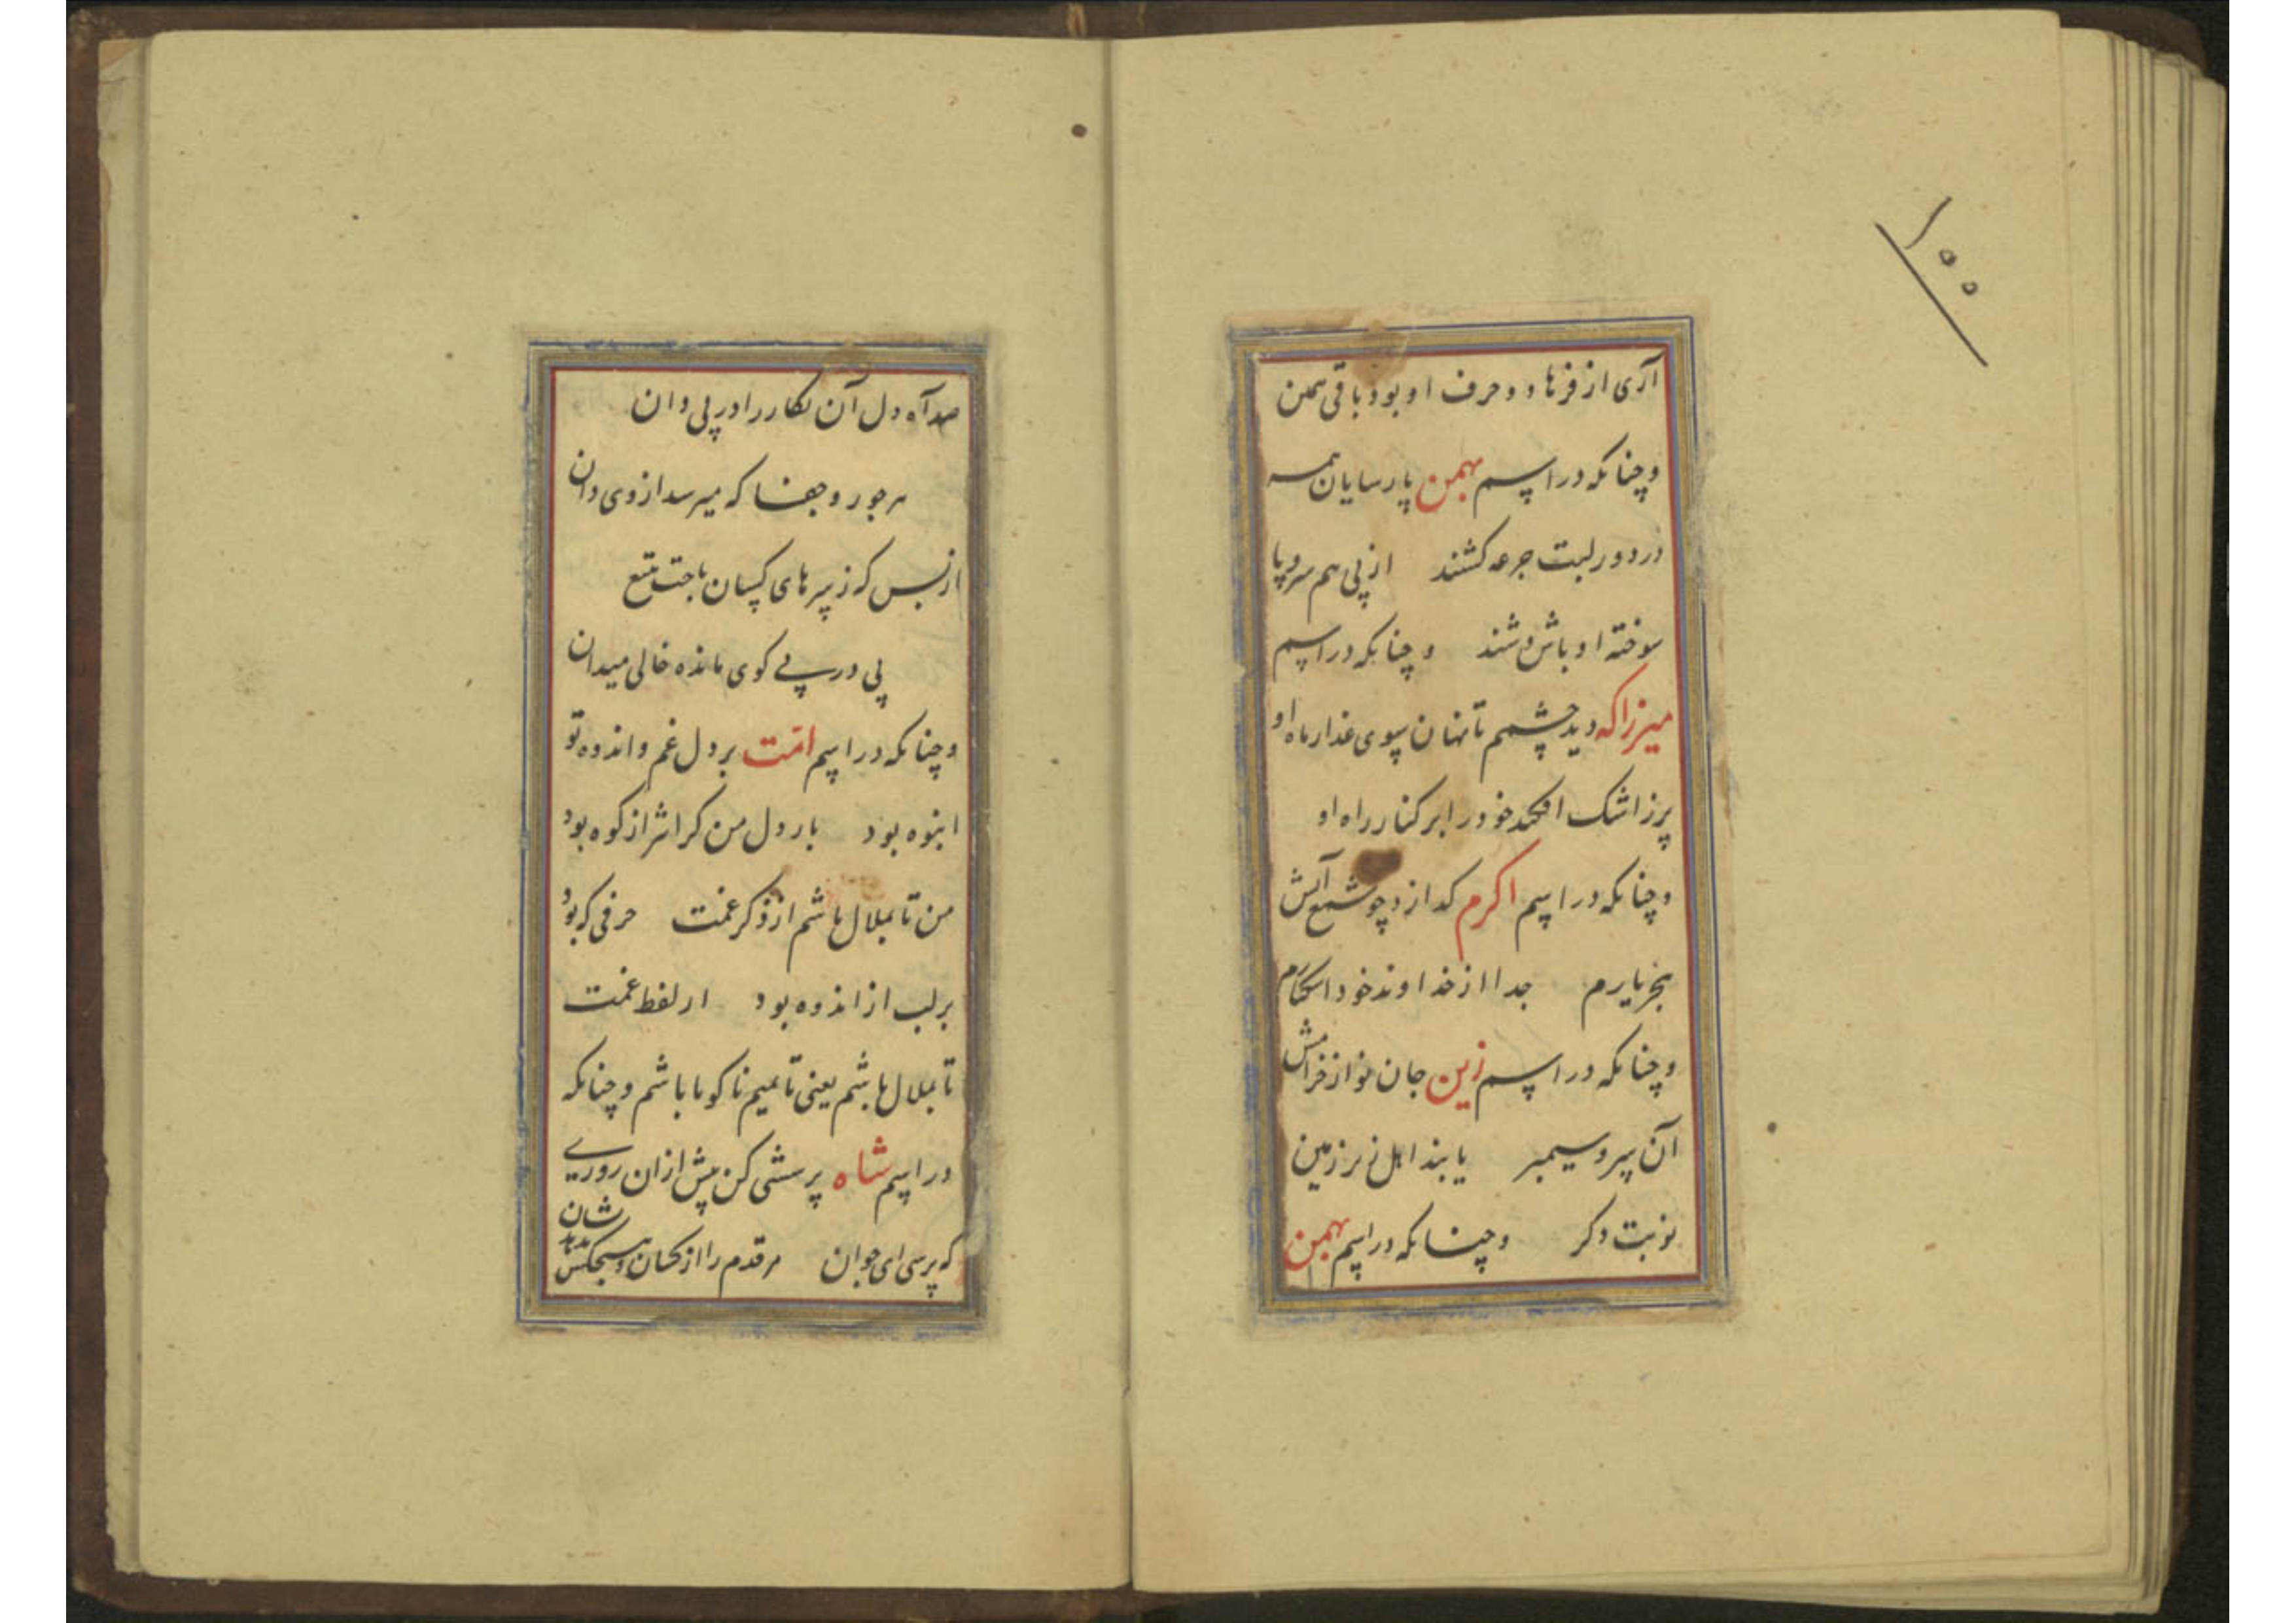 ۱۵۵
آری از فرهاد دو حرف او بود باقی همین
وچنانکه در اسم بهمن پارسایان همه
در دور لبت جرعه کشند از پی هم سروپا
سوخته او باش وشند وچنانکه در اسم
میرزا که دید چشمم تا نهان سوی عذار ماه او
پرز اشک افکند خود را بر کنار راه او
وچنانکه در اسم اکرم کدازد چو شمع آتش
بجر یارم جدا از خداوند خود
وچنانکه در اسم زین جان نواز
آن سیمبر یابند اهل زمین
نوبت دکر وچنانکه در اسم بهمن
صد آه دل آن نکار را در پی دان
هر جور وجفا که میرسد از وی دان
از بس که ز پیرهای کسان تیغ
پی در پی کوی مانده خالی میدان
وچنانکه در اسم امت بر دل غم واندوه تو
انبوه بود بار دل من کرانتر از کوه بود
من تا بملال باشم از ذکر غمت حرفی که بود
بر لب از اندوه بود از لفظ غمت
تا بملال باشم یعنی تا بمیم نا کویا باشم وچنانکه
در اسم شاه پرسشی کن پیش ازان روزی
که پرسی ای جوان هر قدم را از کسان وهیچکس ندید شان